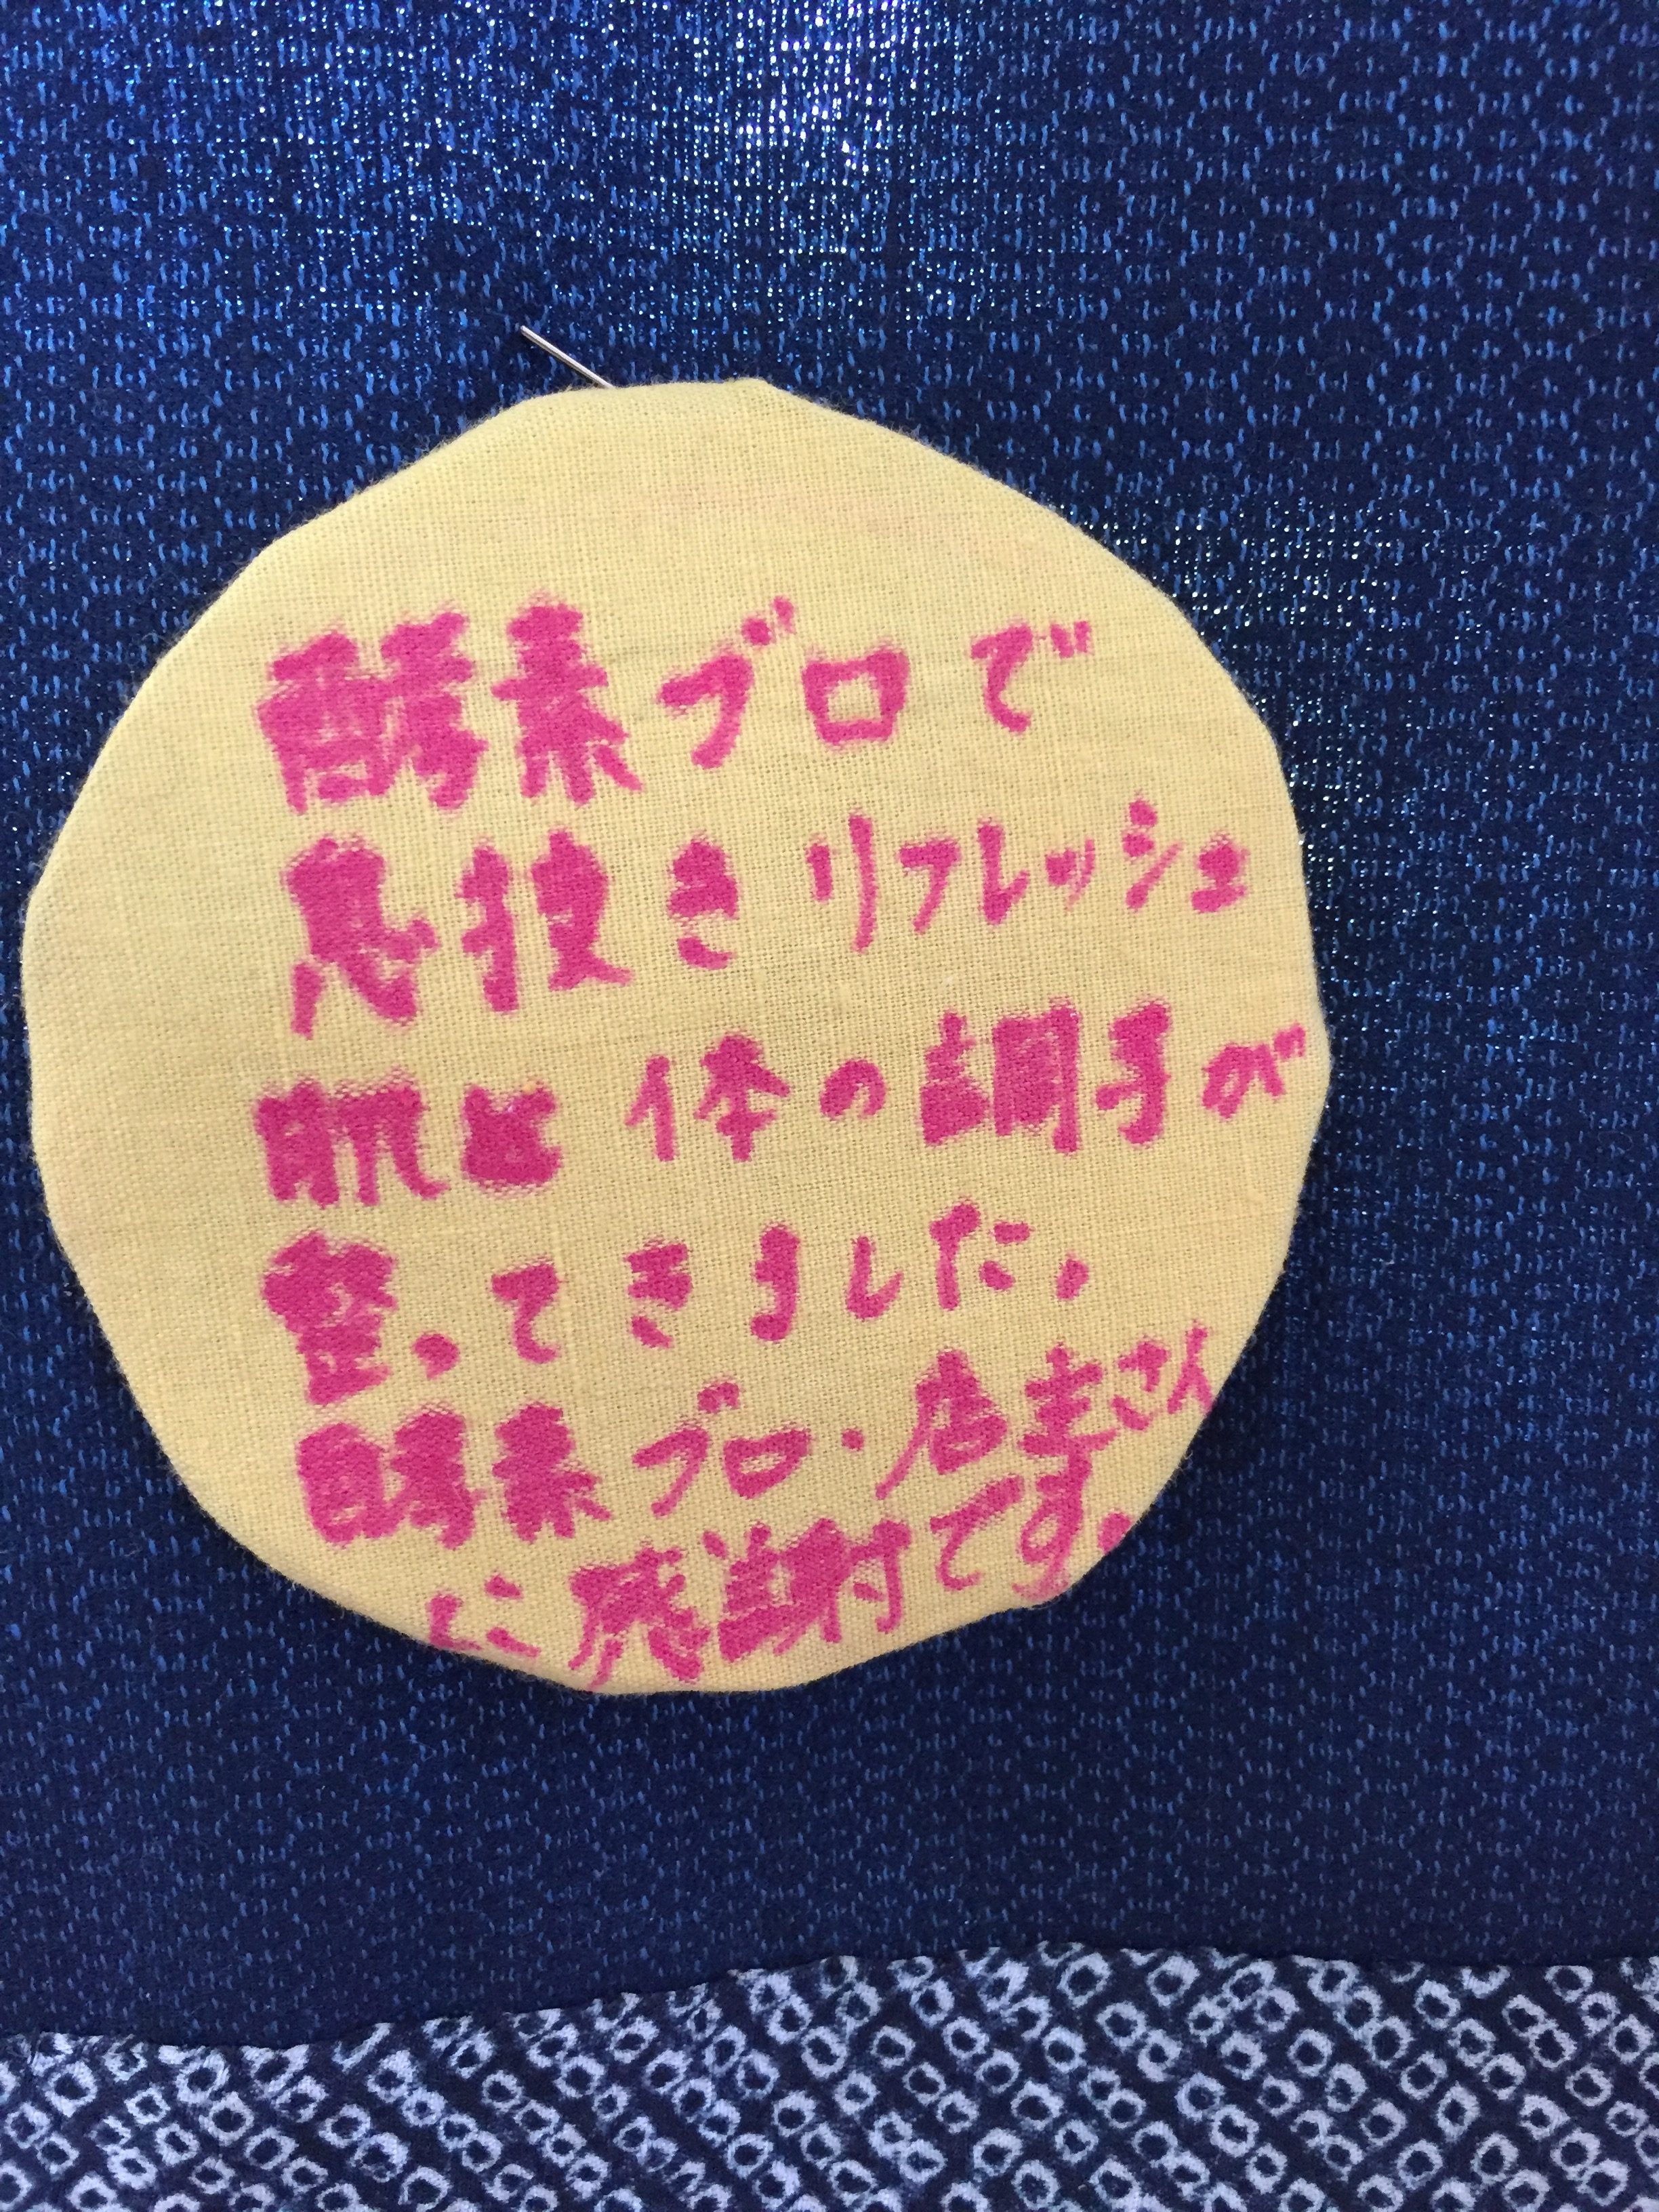 酵素ブロで
息抜きリフレッシュ
肌と体の調子が
整ってきました。
酵素ブロ・店主さん
に感謝です。